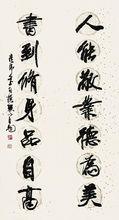 人能敬業德為美
書到脩身品自高